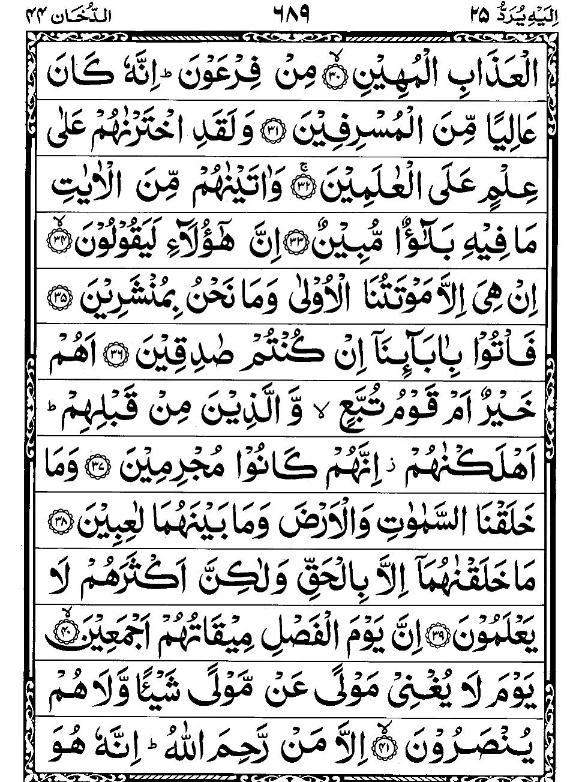 اِلَيْهِ يُرَدُّ ٢٥ ٦٨٩ الدُّخَان ٤٤
الْعَذَابِ الْمُهِيْنِ ۙ‏﴿۳۰﴾ مِنْ فِرْعَوْنَ ؕ اِنَّهٗ كَانَ
عَالِيًا مِّنَ الْمُسْرِفِيْنَ ﴿۳۱﴾ وَ لَقَدِ اخْتَرْنٰهُمْ عَلٰى
عِلْمٍ عَلَى الْعٰلَمِيْنَ ۚ‏﴿۳۲﴾ وَاٰتَيْنٰهُمْ مِّنَ الْاٰيٰتِ
مَا فِيْهِ بَلٰٓؤٌا مُّبِيْنٌ ﴿۳۳﴾ اِنَّ هٰٓؤُلَآءِ لَيَقُوْلُوْنَ ۙ‏﴿۳۴﴾
اِنْ هِىَ اِلَّا مَوْتَتُنَا الْاُوْلٰى وَمَا نَحْنُ بِمُنْشَرِيْنَ ﴿۳۵﴾
فَاْتُوْا بِاٰبَآئِنَاۤ اِنْ كُنْتُمْ صٰدِقِيْنَ ﴿۳۶﴾ اَهُمْ
خَيْرٌ اَمْ قَوْمُ تُبَّعٍ ۙ وَّ الَّذِيْنَ مِنْ قَبْلِهِمْ ؕ
اَهْلَكْنٰهُمْ ز اِنَّهُمْ كَانُوْا مُجْرِمِيْنَ ﴿۳۷﴾ وَمَا
خَلَقْنَا السَّمٰوٰتِ وَالْاَرْضَ وَمَا بَيْنَهُمَا لٰعِبِيْنَ ﴿۳۸﴾
مَا خَلَقْنٰهُمَاۤ اِلَّا بِالْحَقِّ وَلٰكِنَّ اَكْثَرَهُمْ لَا
يَعْلَمُوْنَ ﴿۳۹﴾ اِنَّ يَوْمَ الْفَصْلِ مِيْقَاتُهُمْ اَجْمَعِيْنَ ۙ‏﴿۴۰﴾
يَوْمَ لَا يُغْنِىْ مَوْلًى عَنْ مَّوْلًى شَيْئًا وَّلَا هُمْ
يُنْصَرُوْنَ ۙ‏﴿۴۱﴾ اِلَّا مَنْ رَّحِمَ اللّٰهُ ؕ اِنَّهٗ هُوَ